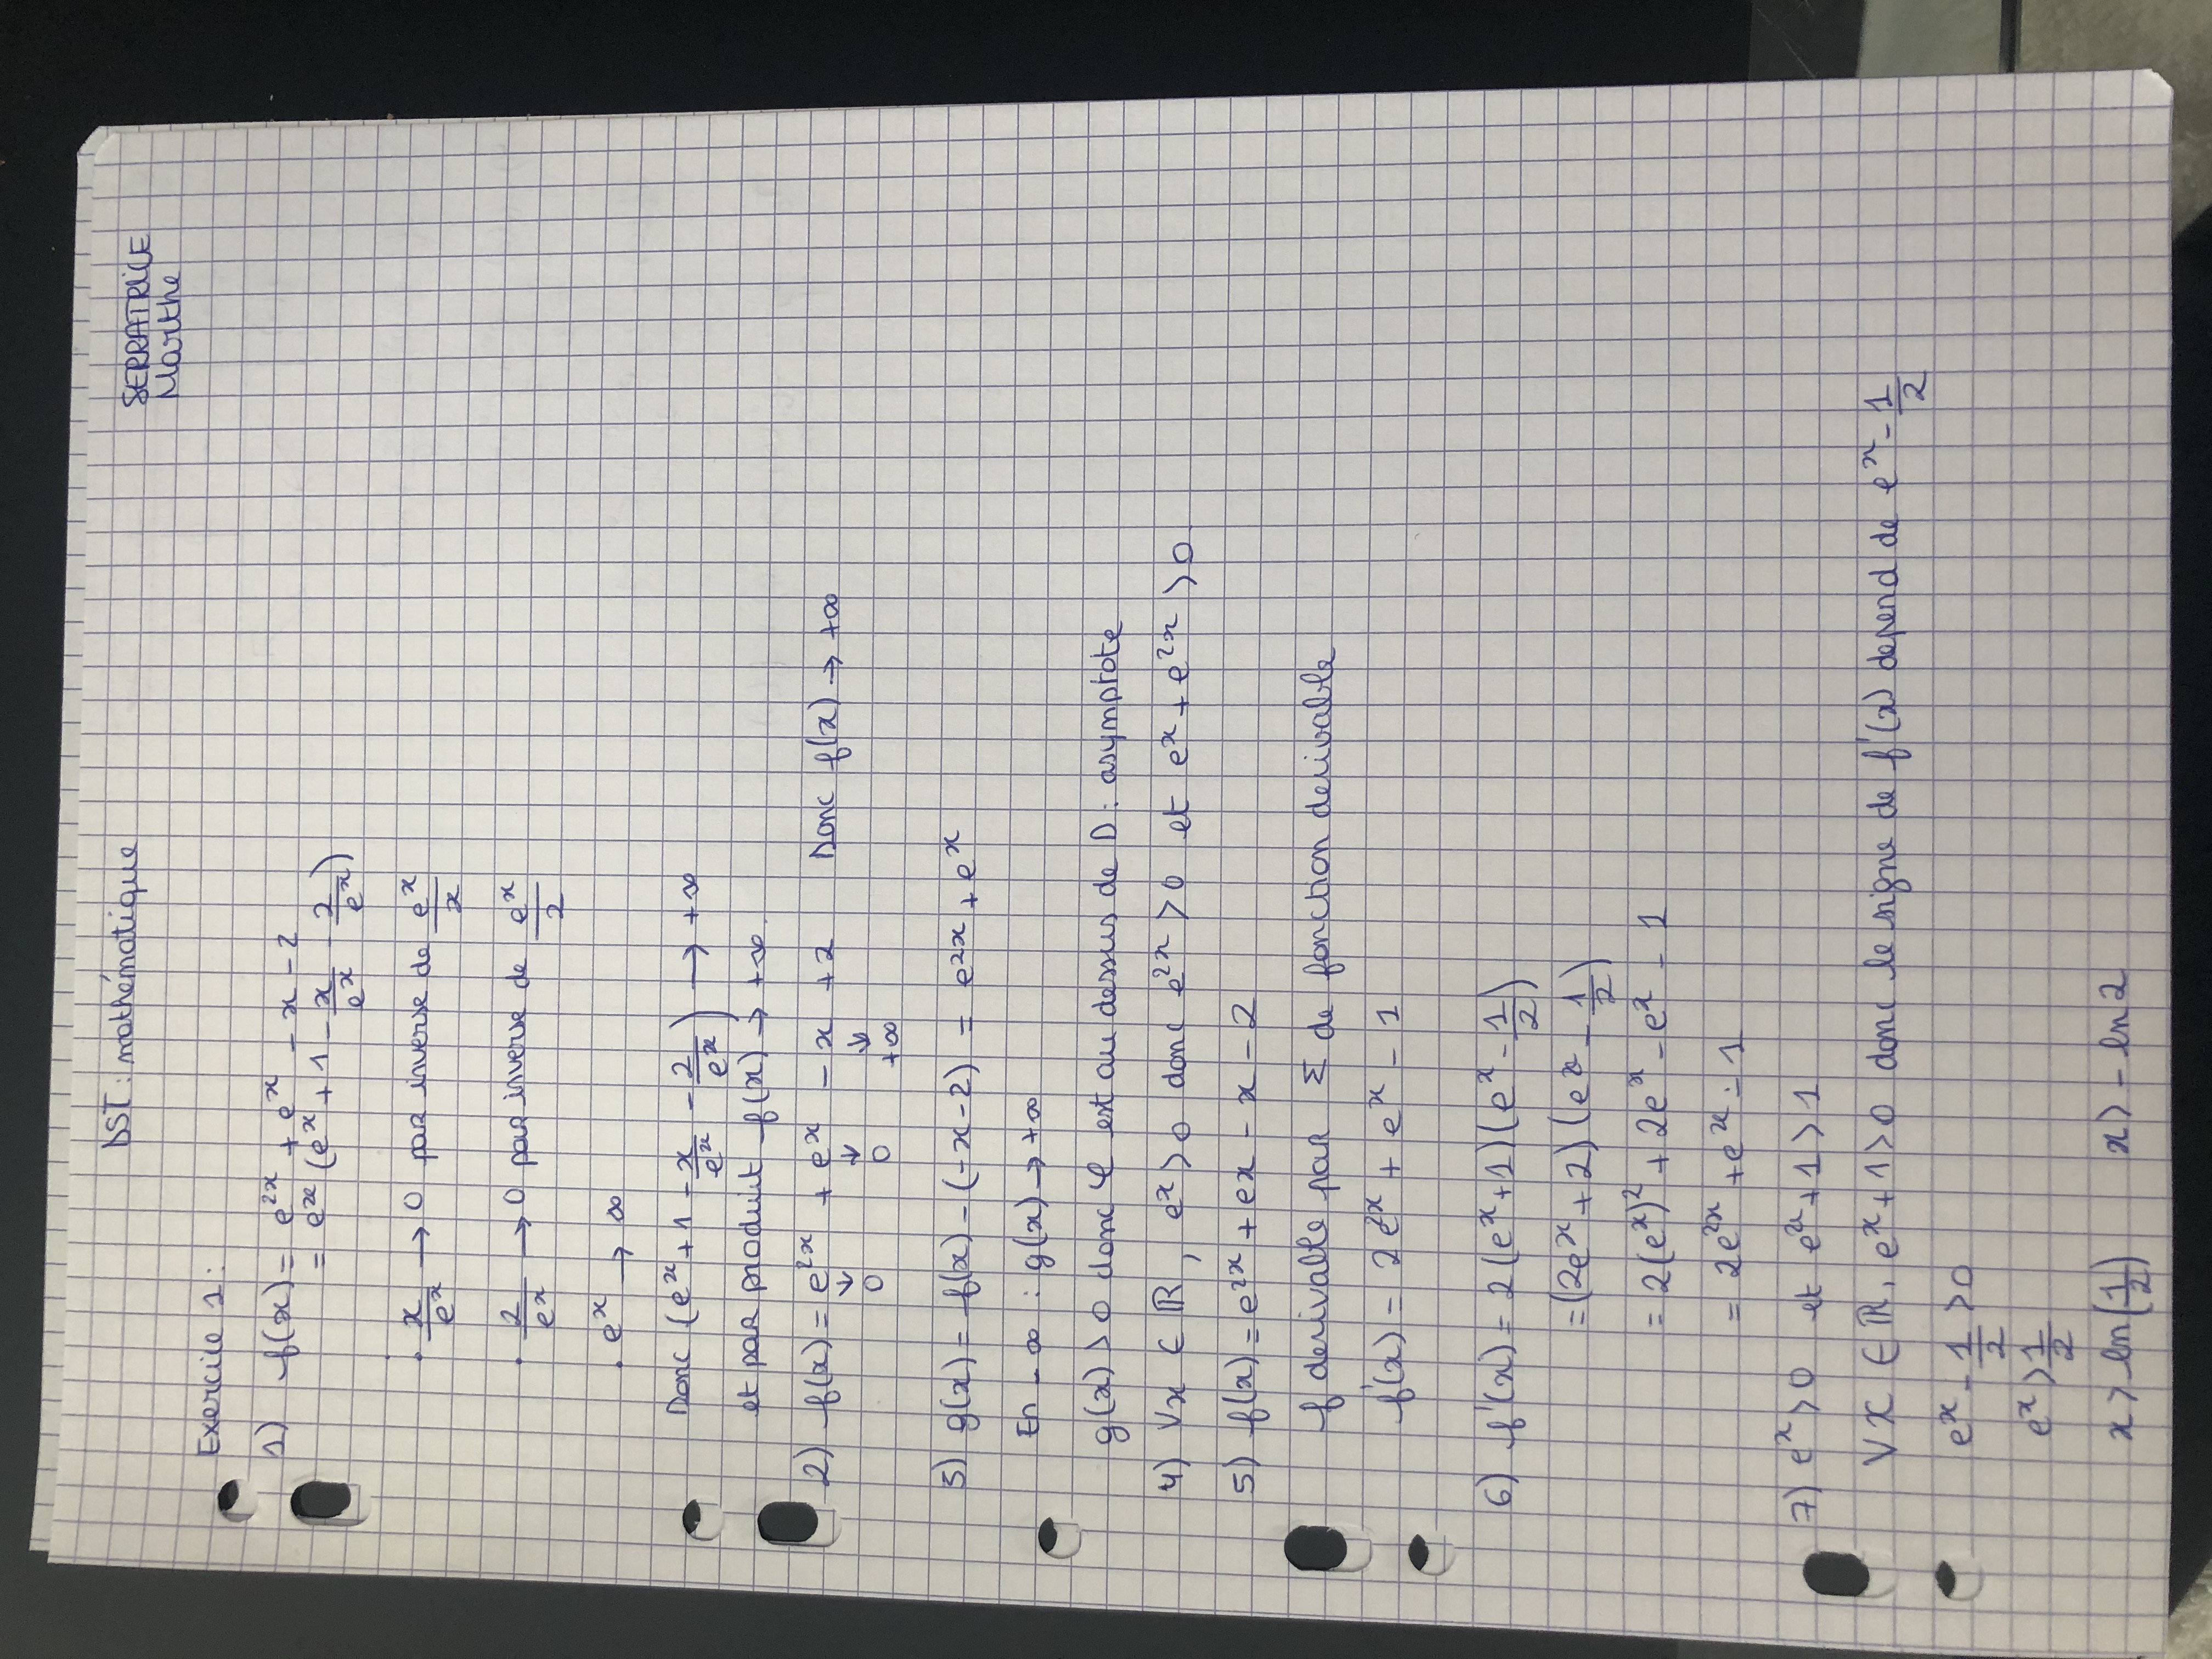 DST : mathématique
SERRATRICE
Marthe
Exercice 1 :
1) f(x) = e^{2x} + e^x - x - 2
= e^x (e^x + 1 - \frac{x}{e^x} - \frac{2}{e^x})
• \frac{x}{e^x} → 0 par inverse de \frac{e^x}{x}
• \frac{2}{e^x} → 0 par inverse de \frac{e^x}{2}
• e^x → ∞
Donc (e^x + 1 - \frac{x}{e^x} - \frac{2}{e^x}) → +∞
et par produit f(x) → +∞
2) f(x) = e^{2x} + e^x - x + 2 Donc f(x) → +∞
↓ ↓ ↓
0 0 +∞
3) g(x) = f(x) - (-x-2) = e^{2x} + e^x
En -∞ : g(x) → +∞
g(x) > 0 donc φ est au dessus de D : asymptote
4) ∀x ∈ ℝ, e^x > 0 donc e^{2x} > 0 et e^x + e^{2x} > 0
5) f(x) = e^{2x} + ex - x - 2
f derivable par Σ de fonction derivable
f'(x) = 2e^{2x} + e^x - 1
6) f'(x) = 2(e^x + 1)(e^x - \frac{1}{2})
= (2e^x + 2)(e^x - \frac{1}{2})
= 2(e^x)^2 + 2e^x - e^x - 1
= 2e^{2x} + e^x - 1
7) e^x > 0 et e^x + 1 > 1
∀x ∈ ℝ, e^x + 1 > 0 donc le signe de f'(x) depend de e^x - \frac{1}{2}
e^x - \frac{1}{2} > 0
e^x > \frac{1}{2}
x > ln(\frac{1}{2}) x > - ln 2